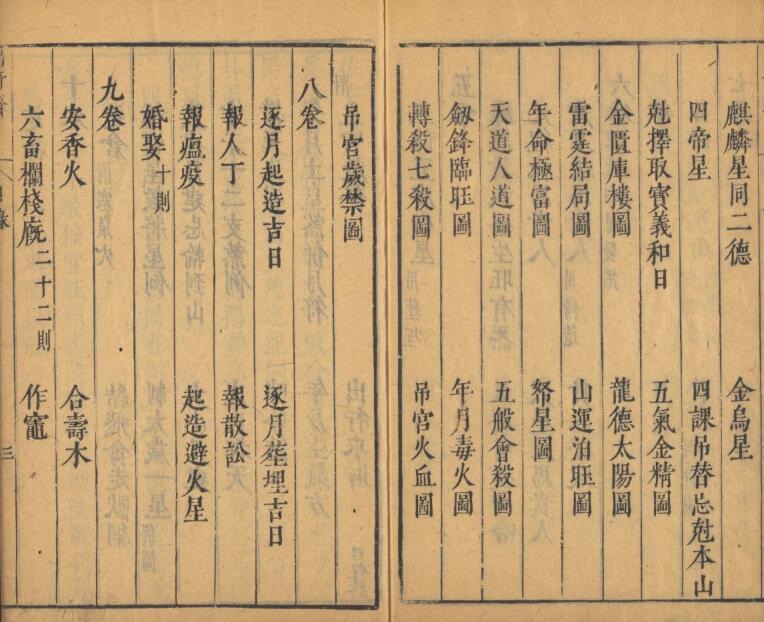 麒麟星同二德　金烏星
四帝星　四課吊替忌尅本山
尅擇取寶義和日　五氣金精圖
金匱庫樓圖　龍德太陽圖
雷霆結局圖　山運泊䀮圖
年命極富圖　帑星圖
天道人道圖　五般會殺圖
劔鋒臨䀮圖　年月毒火圖
轉殺七殺圖　吊宮火血圖
吊宮歲禁圖
八卷
逐月起造吉日　逐月葬埋吉日
報人丁　報散訟
報瘟疫　起造避火星
婚娶十則
九卷
安香火　合壽木
六畜欄棧廐二十二則　作竈
目錄
三